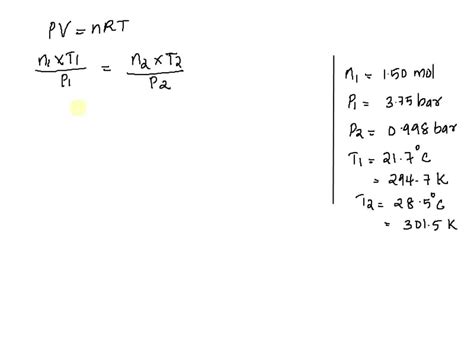 PV = nRT
n₁ × T₁ / P₁ = n₂ × T₂ / P₂
n₁ = 1.50 mol
P₁ = 3.75 bar
P₂ = 0.998 bar
T₁ = 21.7°C
= 294.7 K
T₂ = 28.5°C
= 301.5 K